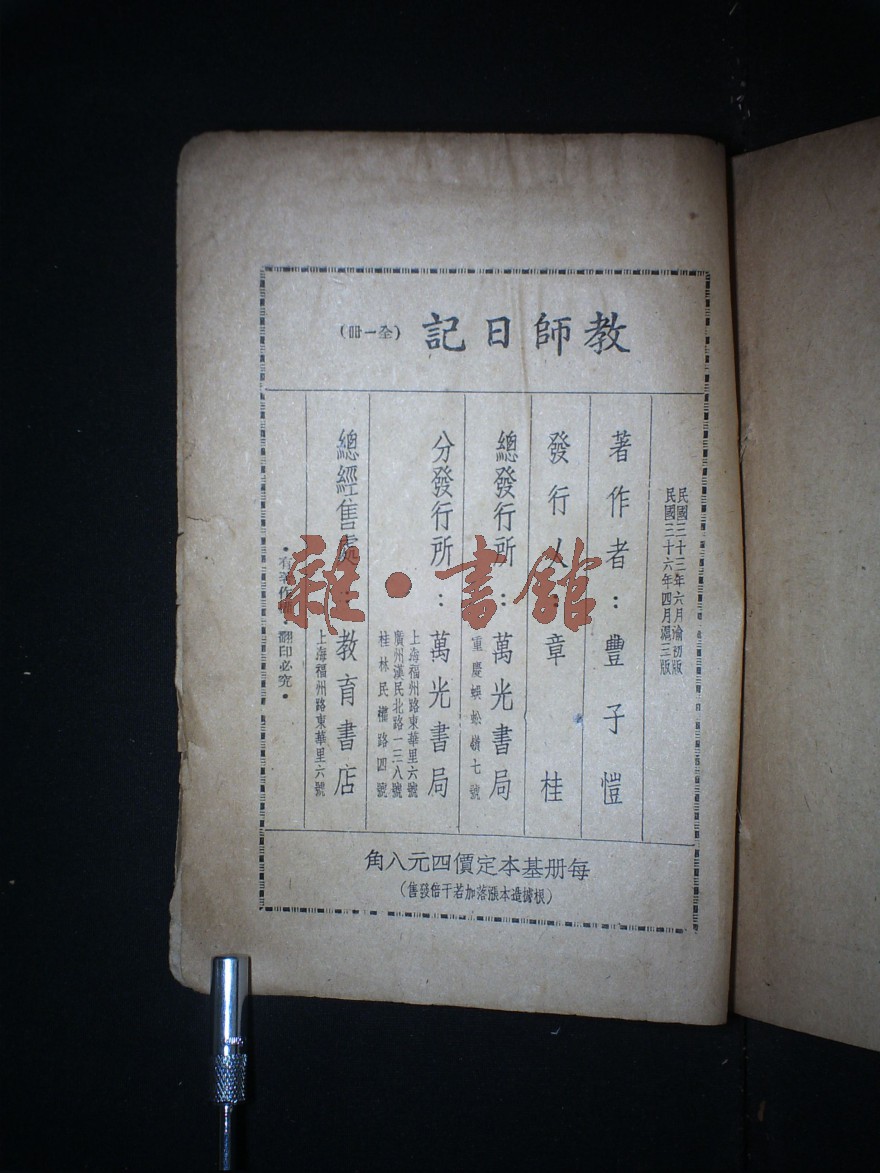 教師日記（全一冊）
民國三十三年六月渝初版
民國三十六年四月滬三版
著作者：豐子愷
發行人：章桂
總發行所：萬光書局
重慶蜈蚣嶺七號
分發行所：萬光書局
上海福州路東華里六號
廣州漢民北路一三八號
桂林民權路四號
總經售處：教育書店
上海福州路東華里六號
•有著作權•翻印必究•
每册基本定價四元八角
（根據造本漲落加若干倍發售）
雜•書館